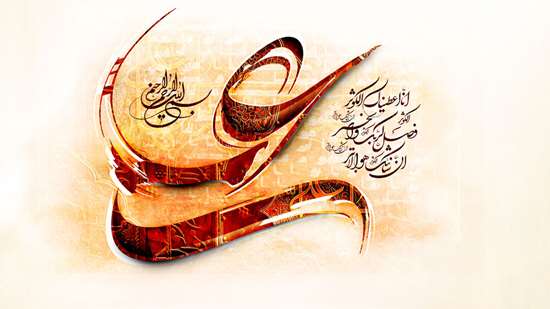 بسم الله الرحمن الرحیم
علی
انا اعطیناک الکوثر
فصل لربک وانحر
ان شانئک هو الابتر